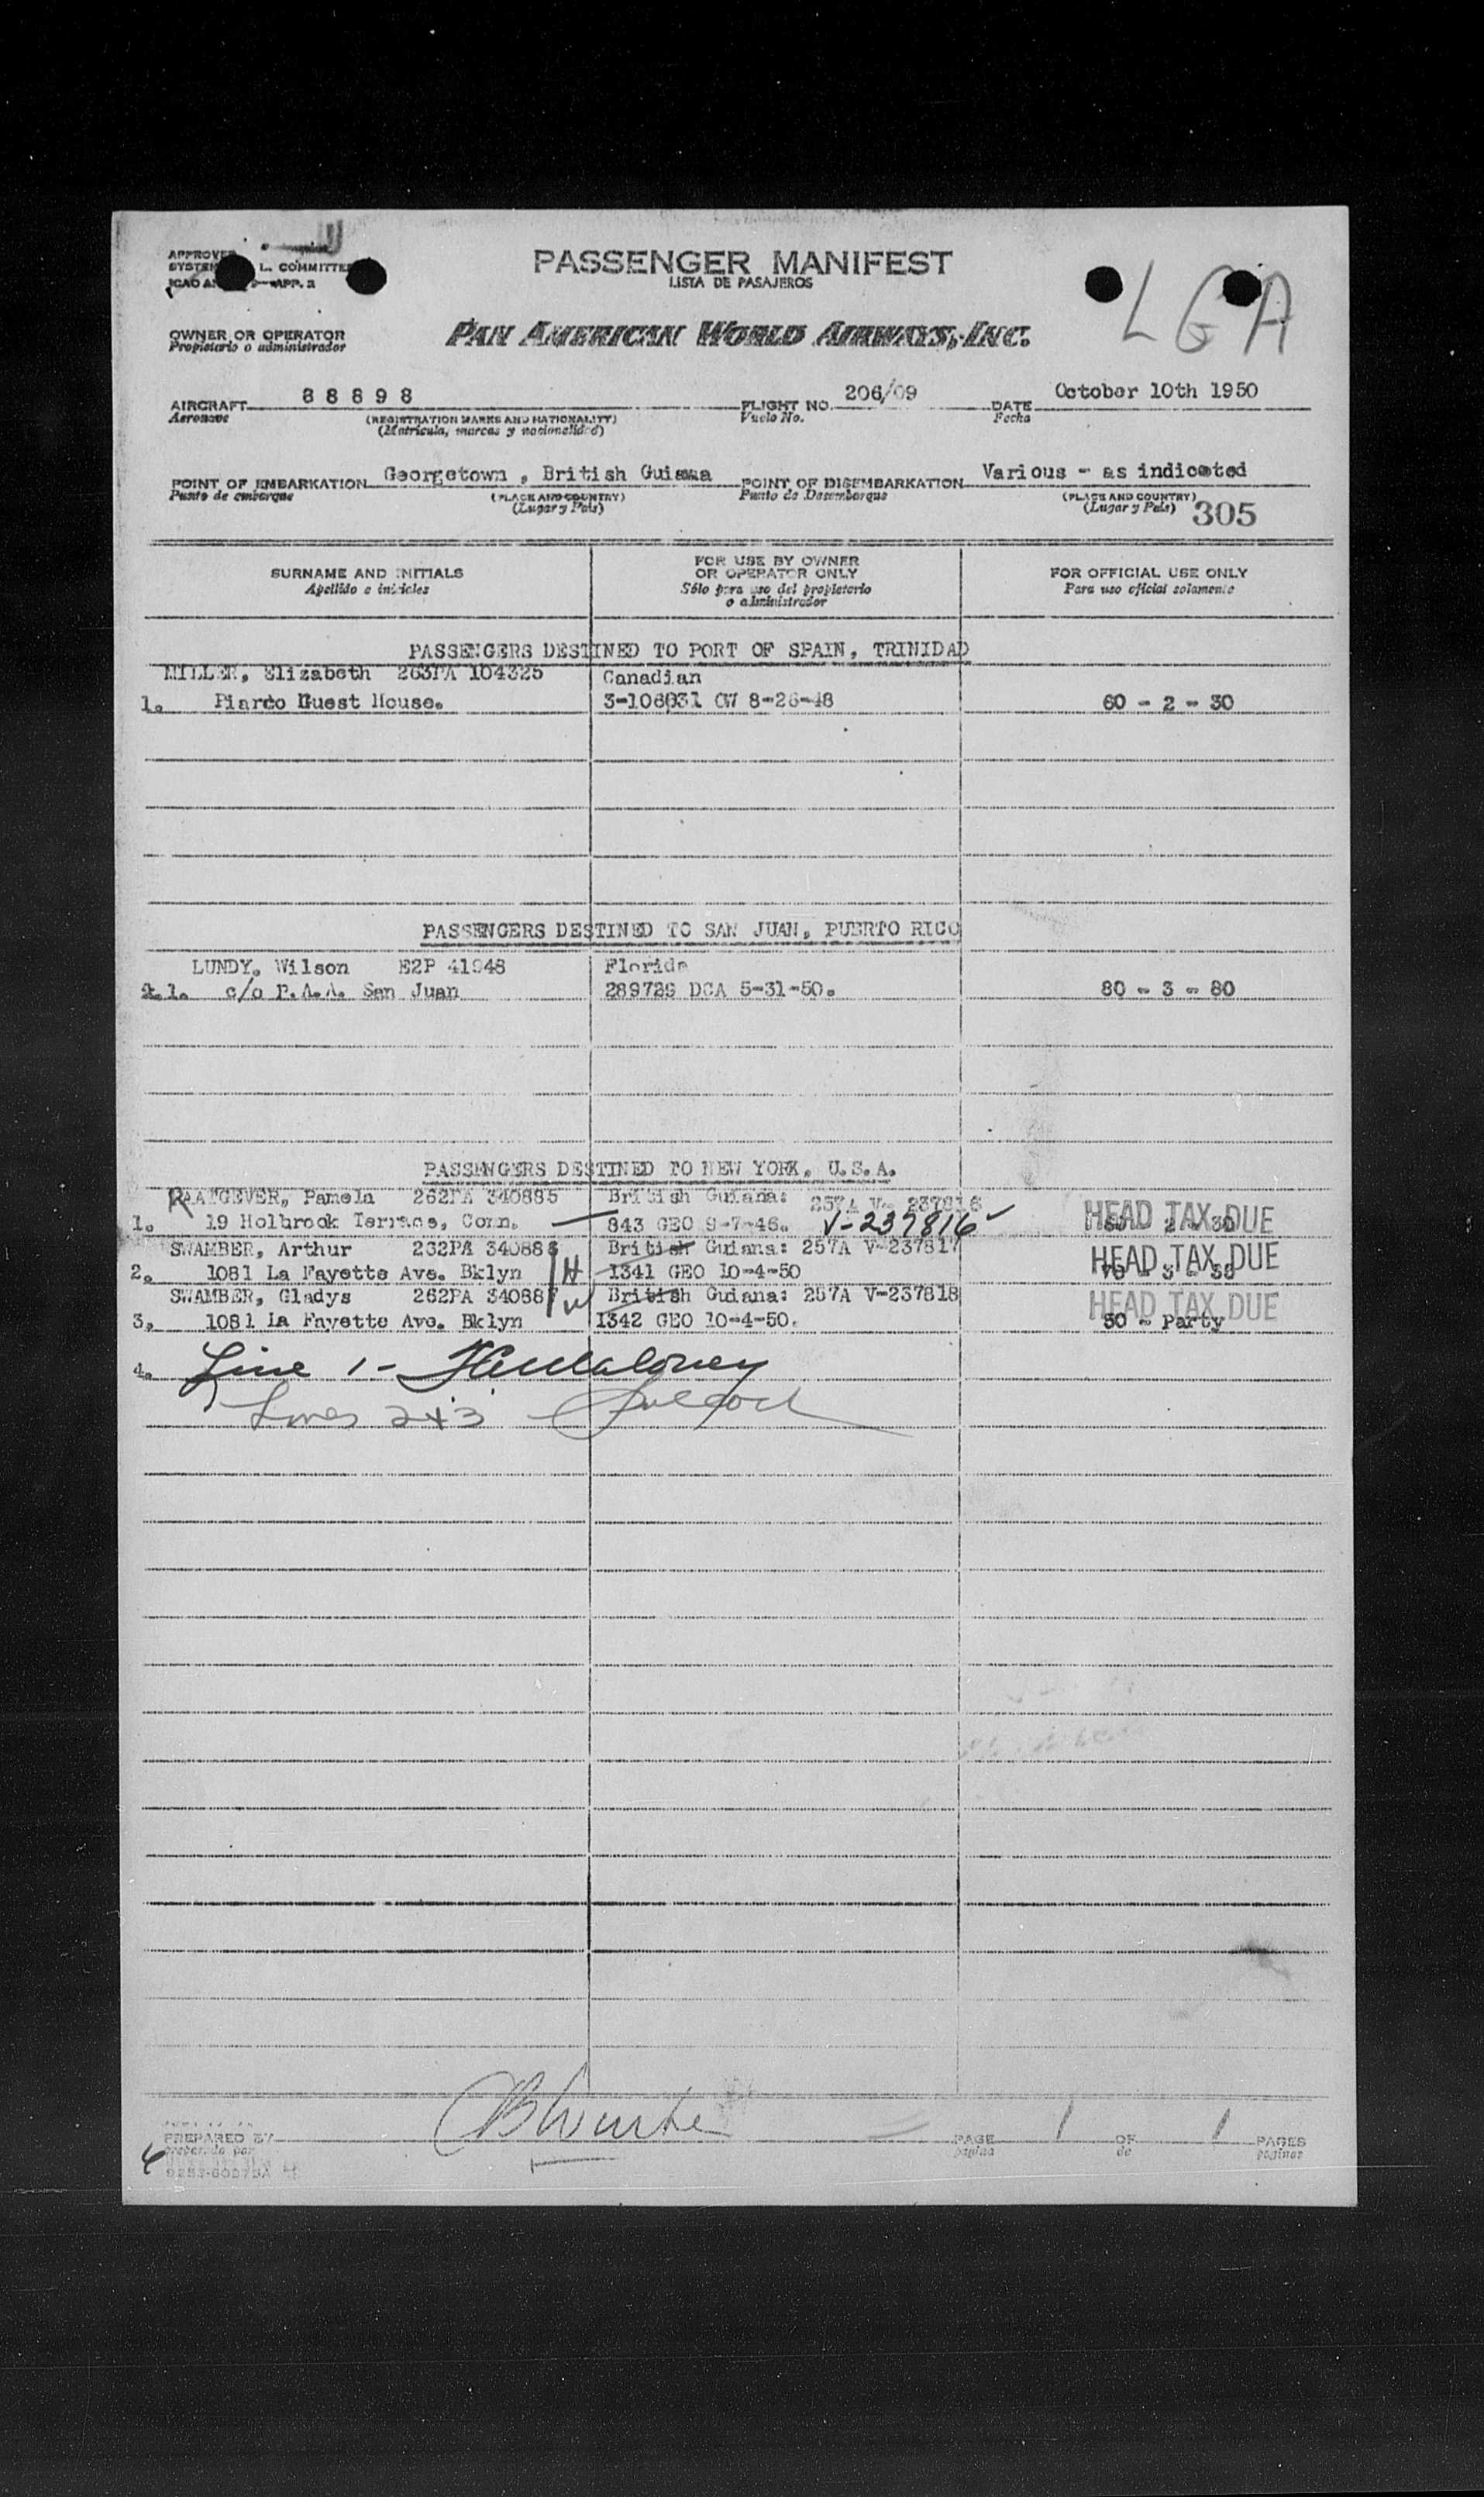 PASSENGER MANIFEST
LISTA DE PASAJEROS
L G A
OWNER OR OPERATOR
Propietario o administrador
PAN AMERICAN WORLD AIRWAYS, INC.
AIRCRAFT 88898 FLIGHT NO. 206/09 DATE October 10th 1950
Aeronave (REGISTRATION MARKS AND NATIONALITY) Vuelo No. Fecha
(Matricula, marcas y nacionalidad)
POINT OF EMBARKATION Georgetown , British Guiana POINT OF DISEMBARKATION Various - as indicated
Punto de embarque (PLACE AND COUNTRY) Punto de Desembarque (PLACE AND COUNTRY)
(Lugar y País) (Lugar y País) 305
SURNAME AND INITIALS FOR USE BY OWNER OR OPERATOR ONLY FOR OFFICIAL USE ONLY
Apellido e iniciales Sólo para uso del propietario o administrador Para uso oficial solamente
PASSENGERS DESTINED TO PORT OF SPAIN, TRINIDAD
MILLER, Elizabeth 263PA 104325 Canadian
1. Piarco Guest House. 3-106031 OW 8-26-48 60 - 2 - 30
PASSENGERS DESTINED TO SAN JUAN, PUERTO RICO
LUNDY, Wilson E2P 41948 Florida
1. c/o P.A.A. San Juan 289729 DCA 5-31-50. 80 - 3 - 80
PASSENGERS DESTINED TO NEW YORK, U.S.A.
RAATGEVER, Pamela 262PA 340885 British Guiana: 257A V- 237816
1. 19 Holbrook Terrace, Conn. 843 GEO 9-7-46. V-237816 HEAD TAX DUE
SWAMBER, Arthur 262PA 340886 British Guiana: 257A V-237817
2. 1081 La Fayette Ave. Bklyn H 1341 GEO 10-4-50 HEAD TAX DUE
SWAMBER, Gladys 262PA 340887 British Guiana: 257A V-237818 HEAD TAX DUE
3. 1081 La Fayette Ave. Bklyn W 1342 GEO 10-4-50. 50 - Party
4. Line 1-
Lines 2+3
PREPARED BY PAGE 1 OF 1 PAGES
preparado por página de páginas